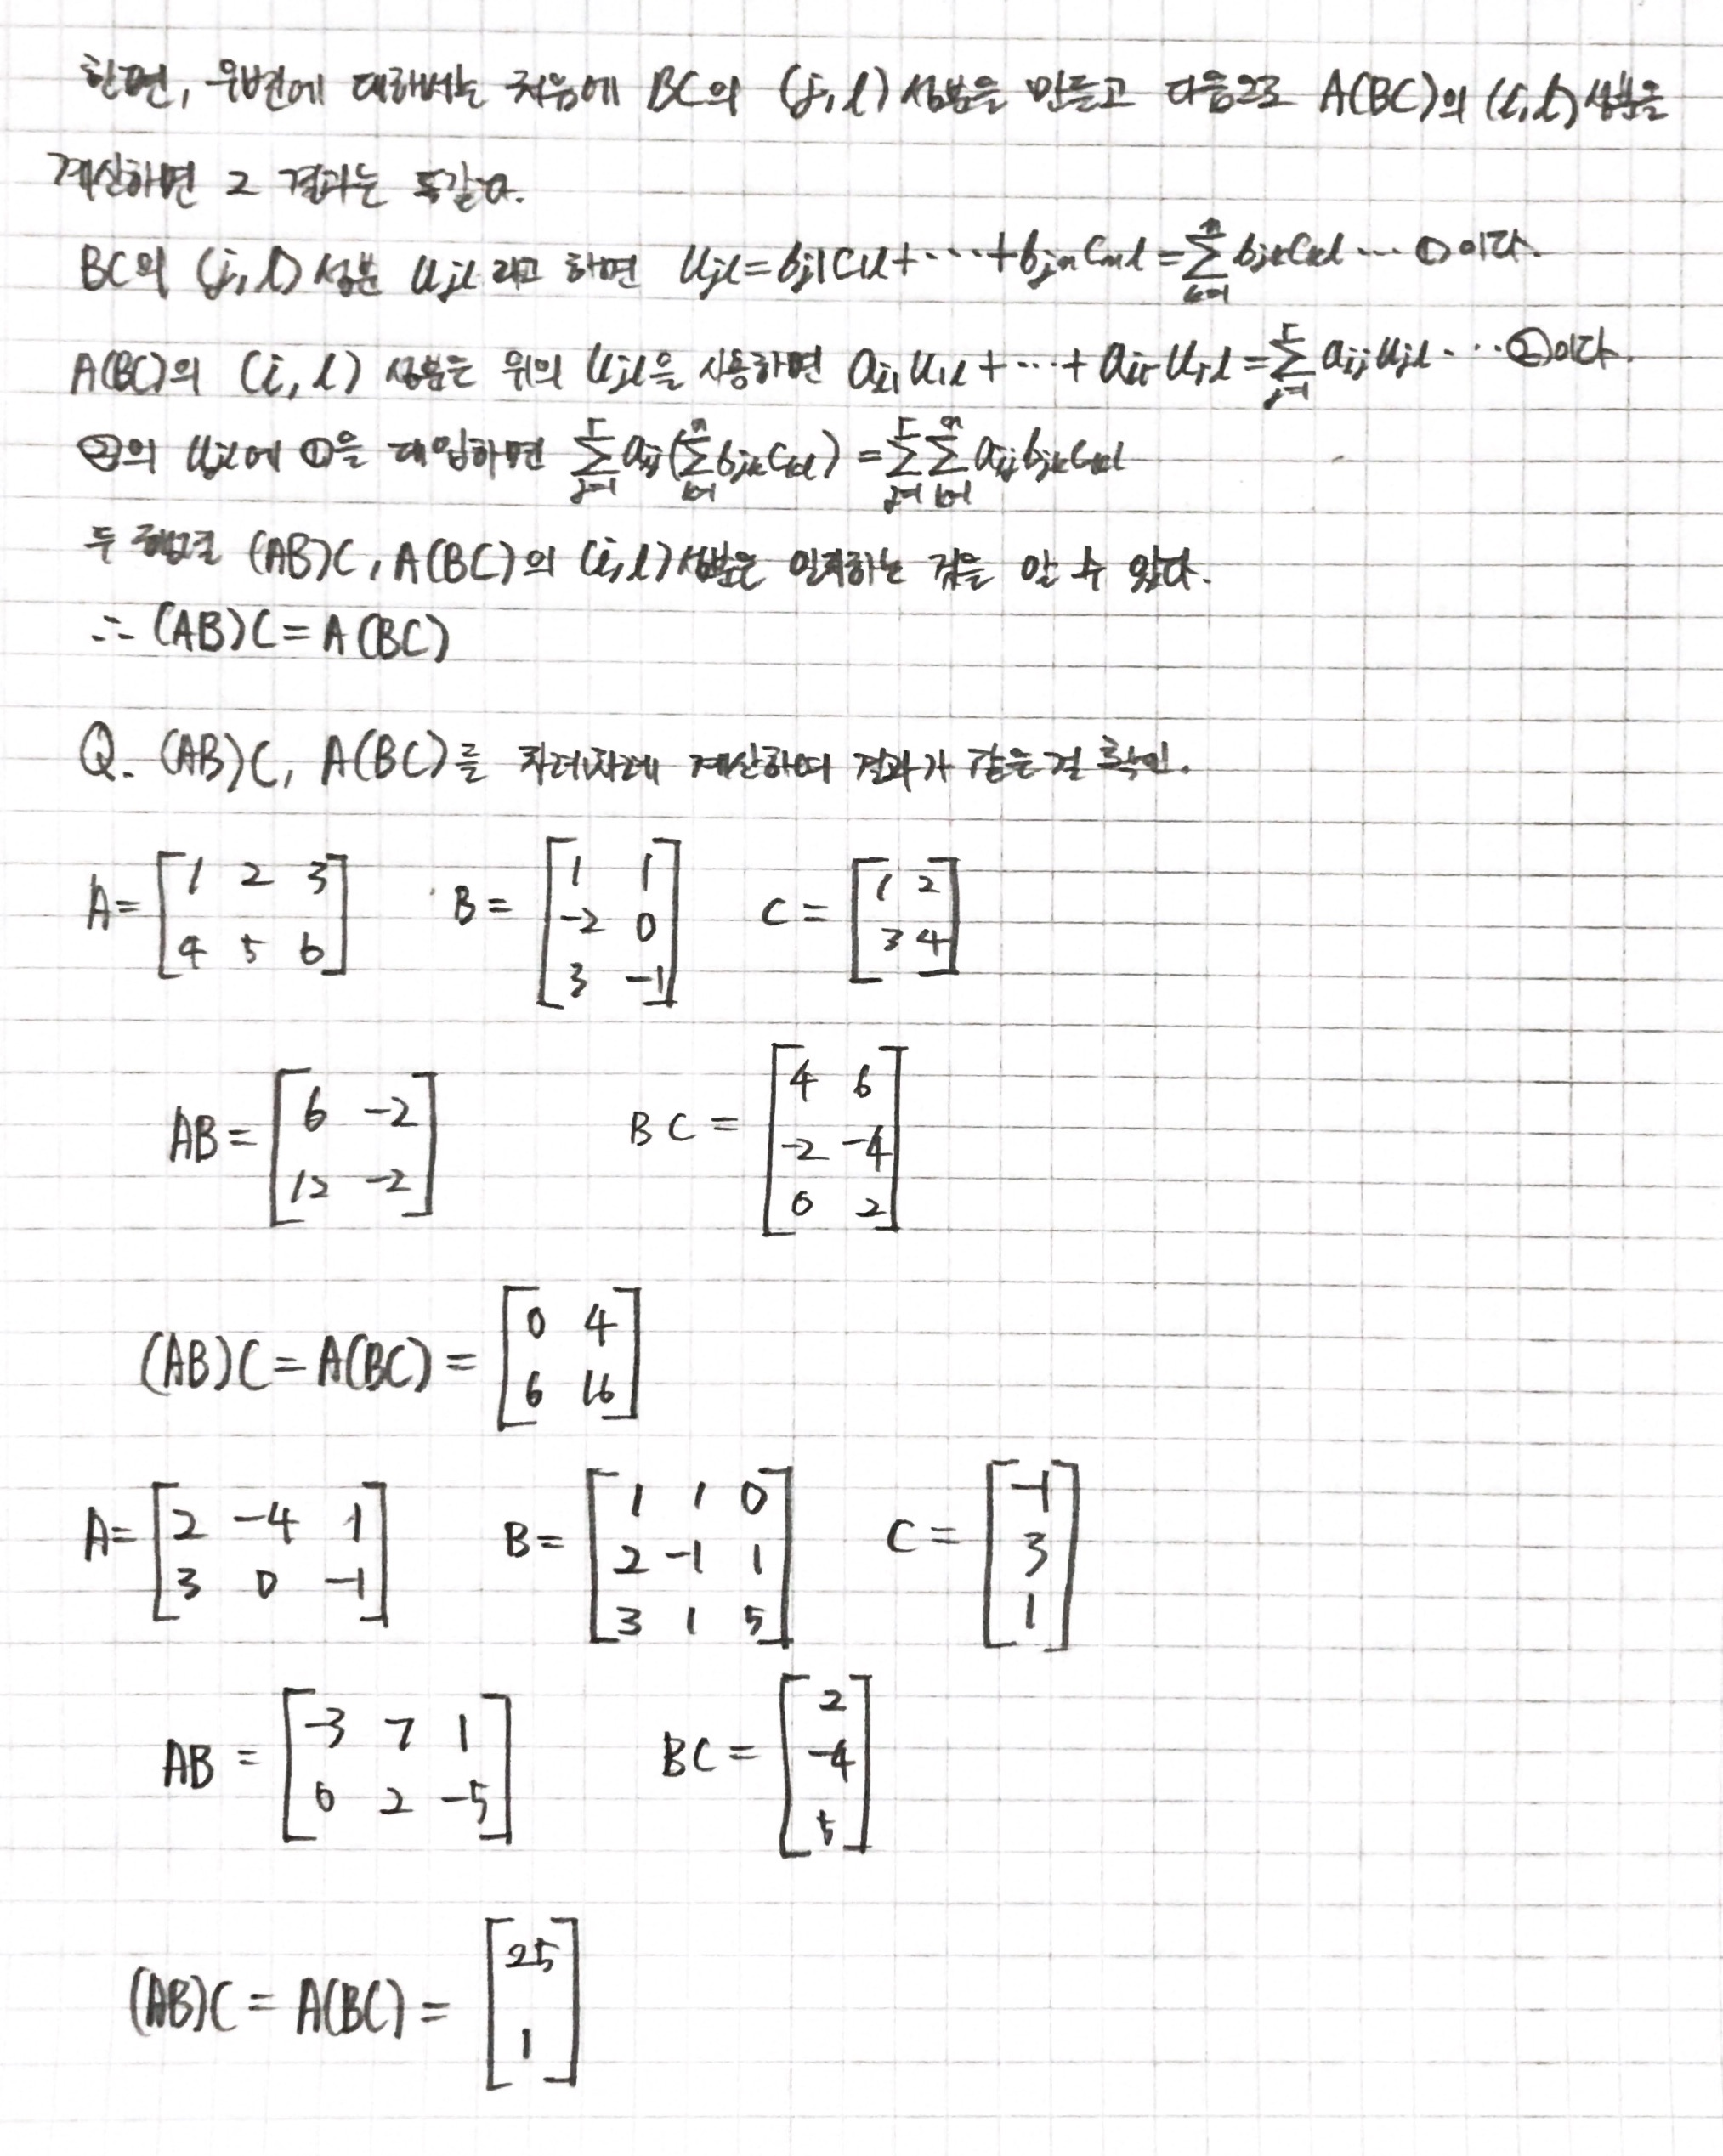 한편, 우변에 대해서는 처음에 BC의 (j, l) 성분을 만들고 다음으로 A(BC)의 (i, l) 성분을
계산하면 그 결과는 똑같다.
BC의 (j, l) 성분 ujl 라고 하면 ujl = bj1 c1l + ··· + bjn cnl = Σ(k=1→n) bjk ckl ··· ① 이다.
A(BC)의 (i, l) 성분은 위의 ujl을 사용하면 ai1 u1l + ··· + air url = Σ(j=1→r) aij ujl ··· ② 이다.
②의 ujl에 ①을 대입하면 Σ(j=1→r) aij (Σ(k=1→n) bjk ckl) = Σ(j=1→r) Σ(k=1→n) aij bjk ckl
두 행렬 (AB)C, A(BC)의 (i, l) 성분은 일치하는 것을 알 수 있다.
∴ (AB)C = A(BC)
Q. (AB)C, A(BC)를 차례차례 계산하여 결과가 같은걸 확인.
A = [1 2 3; 4 5 6] B = [1 1; -2 0; 3 -1] C = [1 2; 3 4]
AB = [6 -2; 12 -2] BC = [4 6; -2 -4; 0 2]
(AB)C = A(BC) = [0 4; 6 16]
A = [2 -4 1; 3 0 -1] B = [1 1 0; 2 -1 1; 3 1 5] C = [-1; 3; 1]
AB = [-3 7 1; 0 2 -5] BC = [2; -4; 5]
(AB)C = A(BC) = [25; 1]